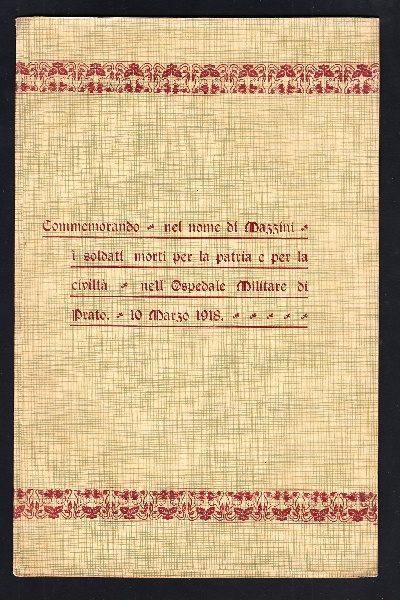 Commemorando nel nome di Mazzini
i soldati morti per la patria e per la
civiltà nell' Ospedale Militare di
Prato. 10 Marzo 1918.